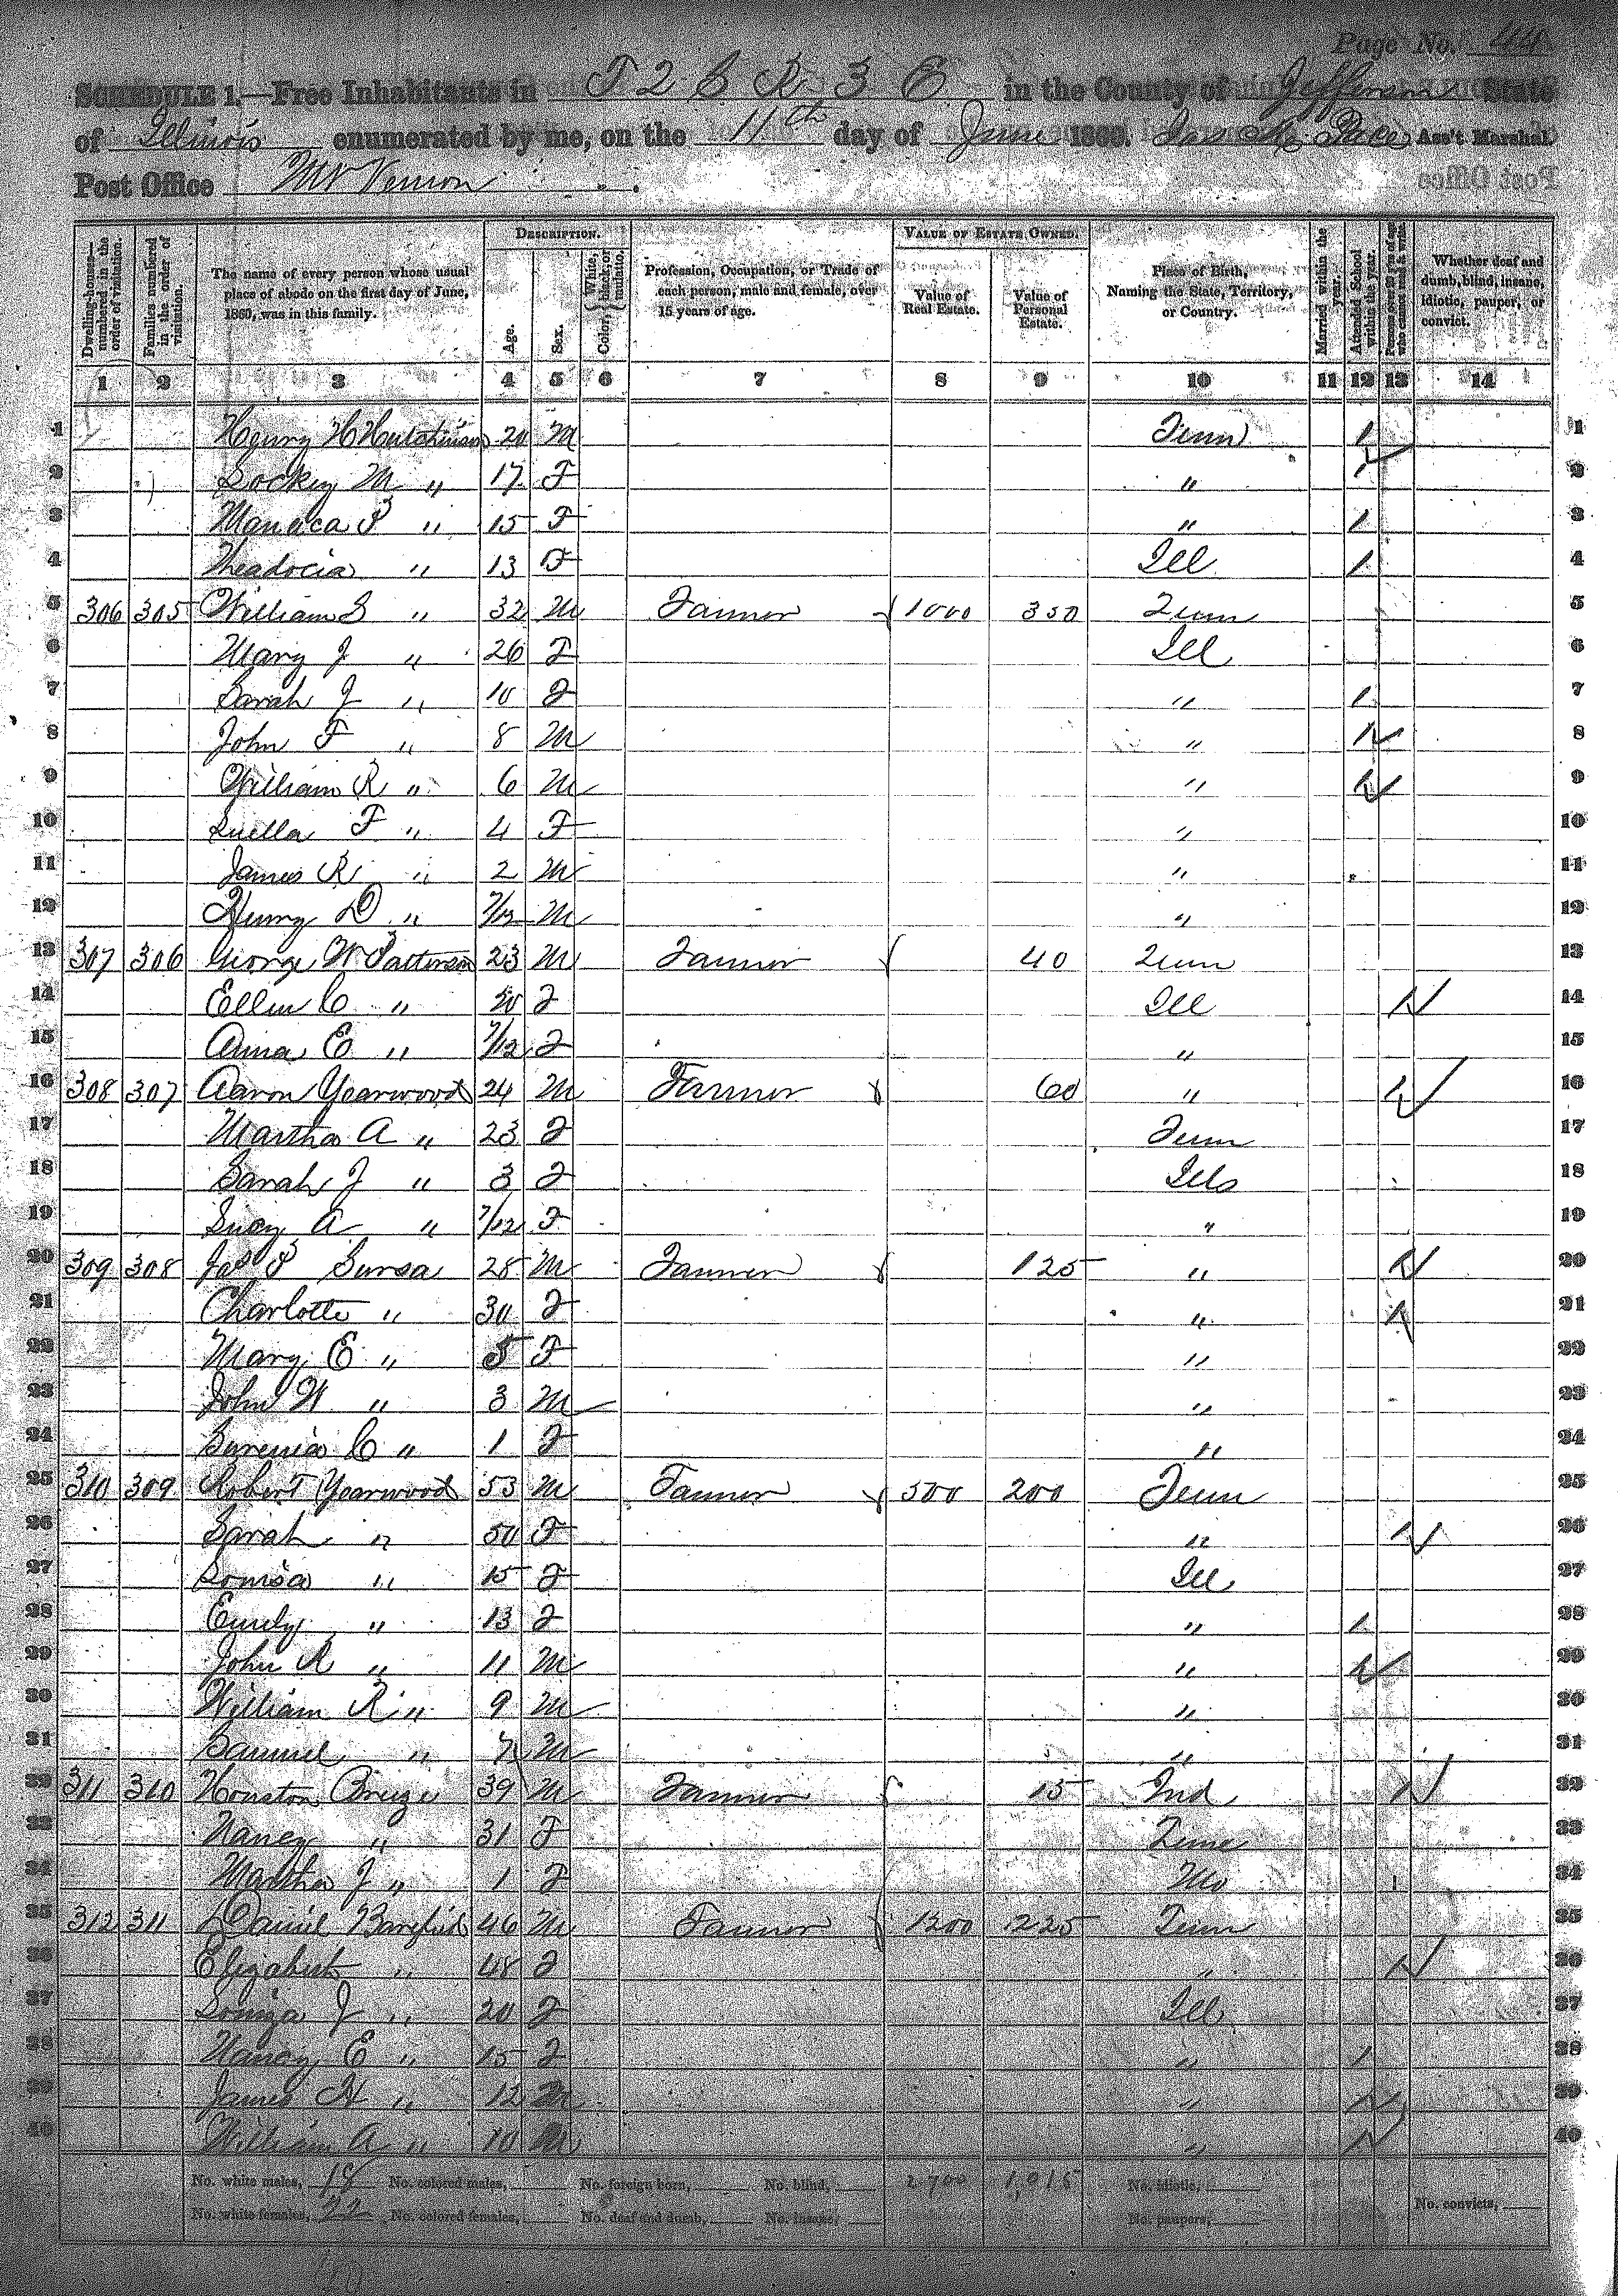 Page No. 44
SCHEDULE 1.—Free Inhabitants in T 2 S R 3 E in the County of Jefferson State
of Illinois enumerated by me, on the 11th day of June 1860. Ass't Marshal.
Post Office Mt Vernon
Dwelling-houses—numbered in the order of visitation.
Families numbered in the order of visitation.
The name of every person whose usual place of abode on the first day of June, 1860, was in this family.
DESCRIPTION.
Age.
Sex.
Color, {White, black, or mulatto.
Profession, Occupation, or Trade of each person, male and female, over 15 years of age.
VALUE OF ESTATE OWNED.
Value of Real Estate.
Value of Personal Estate.
Place of Birth, Naming the State, Territory, or Country.
Married within the year.
Attended School within the year.
Persons over 20 y'rs of age who cannot read & write.
Whether deaf and dumb, blind, insane, idiotic, pauper, or convict.
1 2 3 4 5 6 7 8 9 10 11 12 13 14
1 Henry H Hutchinson 20 M Tenn 1 1
2 M " 17 F " 1 2
3 " 15 F " 1 3
4 Theadocia " 13 F Ill 1 4
5 306 305 William S " 32 M Farmer 1000 350 Tenn 5
6 Mary J " 26 F Ill 6
7 Sarah J " 10 F " 1 7
8 John F " 8 M " 1 8
9 William R " 6 M " 1 9
10 Luella F " 4 F " 10
11 James R " 2 M " 11
12 Henry D " 7/12 M " 12
13 307 306 George W Patterson 23 M Farmer 40 Tenn 13
14 Ellen C " 20 F Ill 1 14
15 Anna E " 7/12 F " 15
16 308 307 Aaron Yearwood 24 M Farmer 60 " 1 16
17 Martha A " 23 F Tenn 17
18 Sarah J " 3 F Ills 18
19 Lucy A " 7/12 F " 19
20 309 308 Jas P Sursa 28 M Farmer 125 " 1 20
21 Charlotte " 30 F " 1 21
22 Mary E " 5 F " 22
23 John W " 3 M " 23
24 Surenia C " 1 F " 24
25 310 309 Robert Yearwood 53 M Farmer 500 200 Tenn 25
26 Sarah " 50 F " 1 26
27 Louisa " 15 F Ill 27
28 Emily " 13 F " 1 28
29 John R " 11 M " 1 29
30 William R " 9 M " 30
31 Samuel " 7 M " 31
32 311 310 Houston Breeze 39 M Farmer 15 Ind 1 32
33 Nancy " 31 F Tenn 33
34 Martha J " 1 F Mo 34
35 312 311 Daniel Barefield 46 M Farmer 1200 225 Tenn 35
36 Elizabeth " 48 F " 1 36
37 Louiza J " 20 F Ill 37
38 Nancy E " 15 F " 1 38
39 James H " 12 M " 1 39
40 William A " 10 M " 1 40
No. white males, 18 No. colored males, No. foreign born, No. blind, 2700 1,015 No. idiotic,
No. white females, 22 No. colored females, No. deaf and dumb, No. insane, No. paupers, No. convicts,